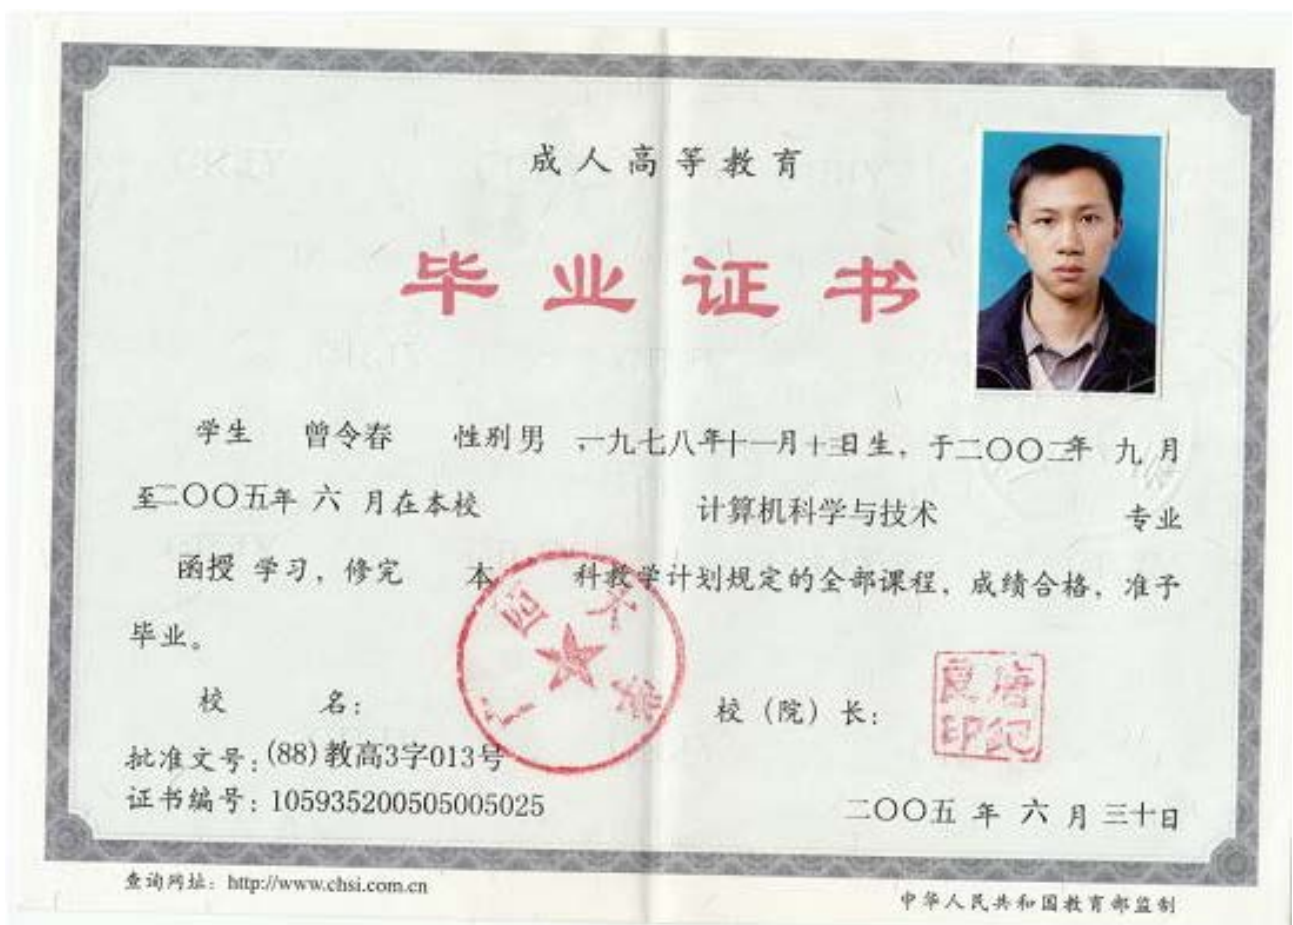 成人高等教育
毕业证书
学生 曾令春 性别 男 ,一九七八年十一月十二日生, 于二〇〇二年 九 月
至二〇〇五年 六 月在本校 计算机科学与技术 专业
函授 学习, 修完 本 科教学计划规定的全部课程, 成绩合格, 准予
毕业。
校 名:
广西大学
校（院）长:
唐纪良印
批准文号: (88)教高3字013号
证书编号: 105935200505005025
二〇〇五 年 六 月 三十日
查询网址: http://www.chsi.com.cn
中华人民共和国教育部监制